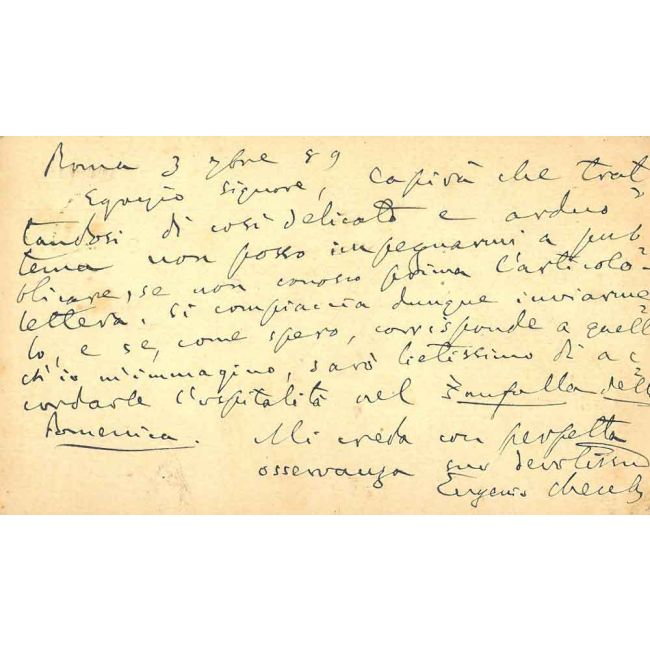 Roma 3 7bre 89
Egregio signore, capirà che trat-
tandosi di così delicato e arduo
tema non posso impegnarmi a pub-
blicare, se non conosco prima l'articolo-
lettera. Si compiaccia dunque inviarme-
lo, e se, come spero, corrisponde a quell
ch'io m'immagino, sarò lietissimo di ac-
cordarle l'ospitalità nel Fanfulla dell
Domenica. Mi creda con perfetta
osservanza suo devotissimo
Eugenio Checchi